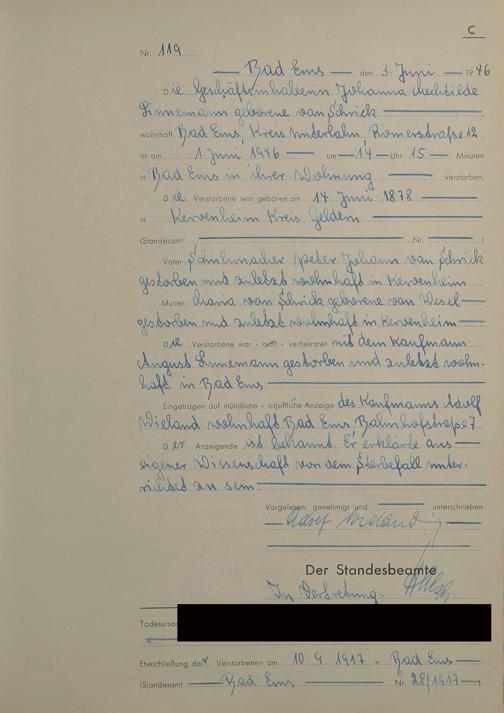 C
Nr. 119
Bad Ems, den 3. Juni 1946
Die Geschäftsinhaberin Johanna Mechtilde
Linnemann geborene van Schrick
wohnhaft Bad Ems, Kreis Unterlahn, Römerstraße 12
ist am 1. Juni 1946 um 14 Uhr 15 Minuten
in Bad Ems in ihrer Wohnung verstorben.
Die Verstorbene war geboren am 14. Juni 1878
in Kervenheim Kreis Geldern
(Standesamt Nr. )
Vater: Schuhmacher Peter Johann van Schrick
gestorben und zuletzt wohnhaft in Kervenheim
Mutter: Maria van Schrick geborene van Wesel
gestorben und zuletzt wohnhaft in Kervenheim
Die Verstorbene war - nicht - verheiratet mit dem Kaufmann
August Linnemann gestorben und zuletzt wohn-
haft in Bad Ems
Eingetragen auf mündliche - schriftliche Anzeige des Kaufmanns Adolf
Wieland wohnhaft Bad Ems, Bahnhofstraße 7
Der Anzeigende ist bekannt. Er erklärte aus
eigener Wissenschaft von dem Sterbefall unter-
richtet zu sein.
Vorgelesen, genehmigt und unterschrieben
Adolf Wieland
Der Standesbeamte
In Vertretung:
Todesursac
Eheschließung der Verstorbenen am 10. 9. 1917 in Bad Ems
(Standesamt Bad Ems Nr. 28/1917 ).